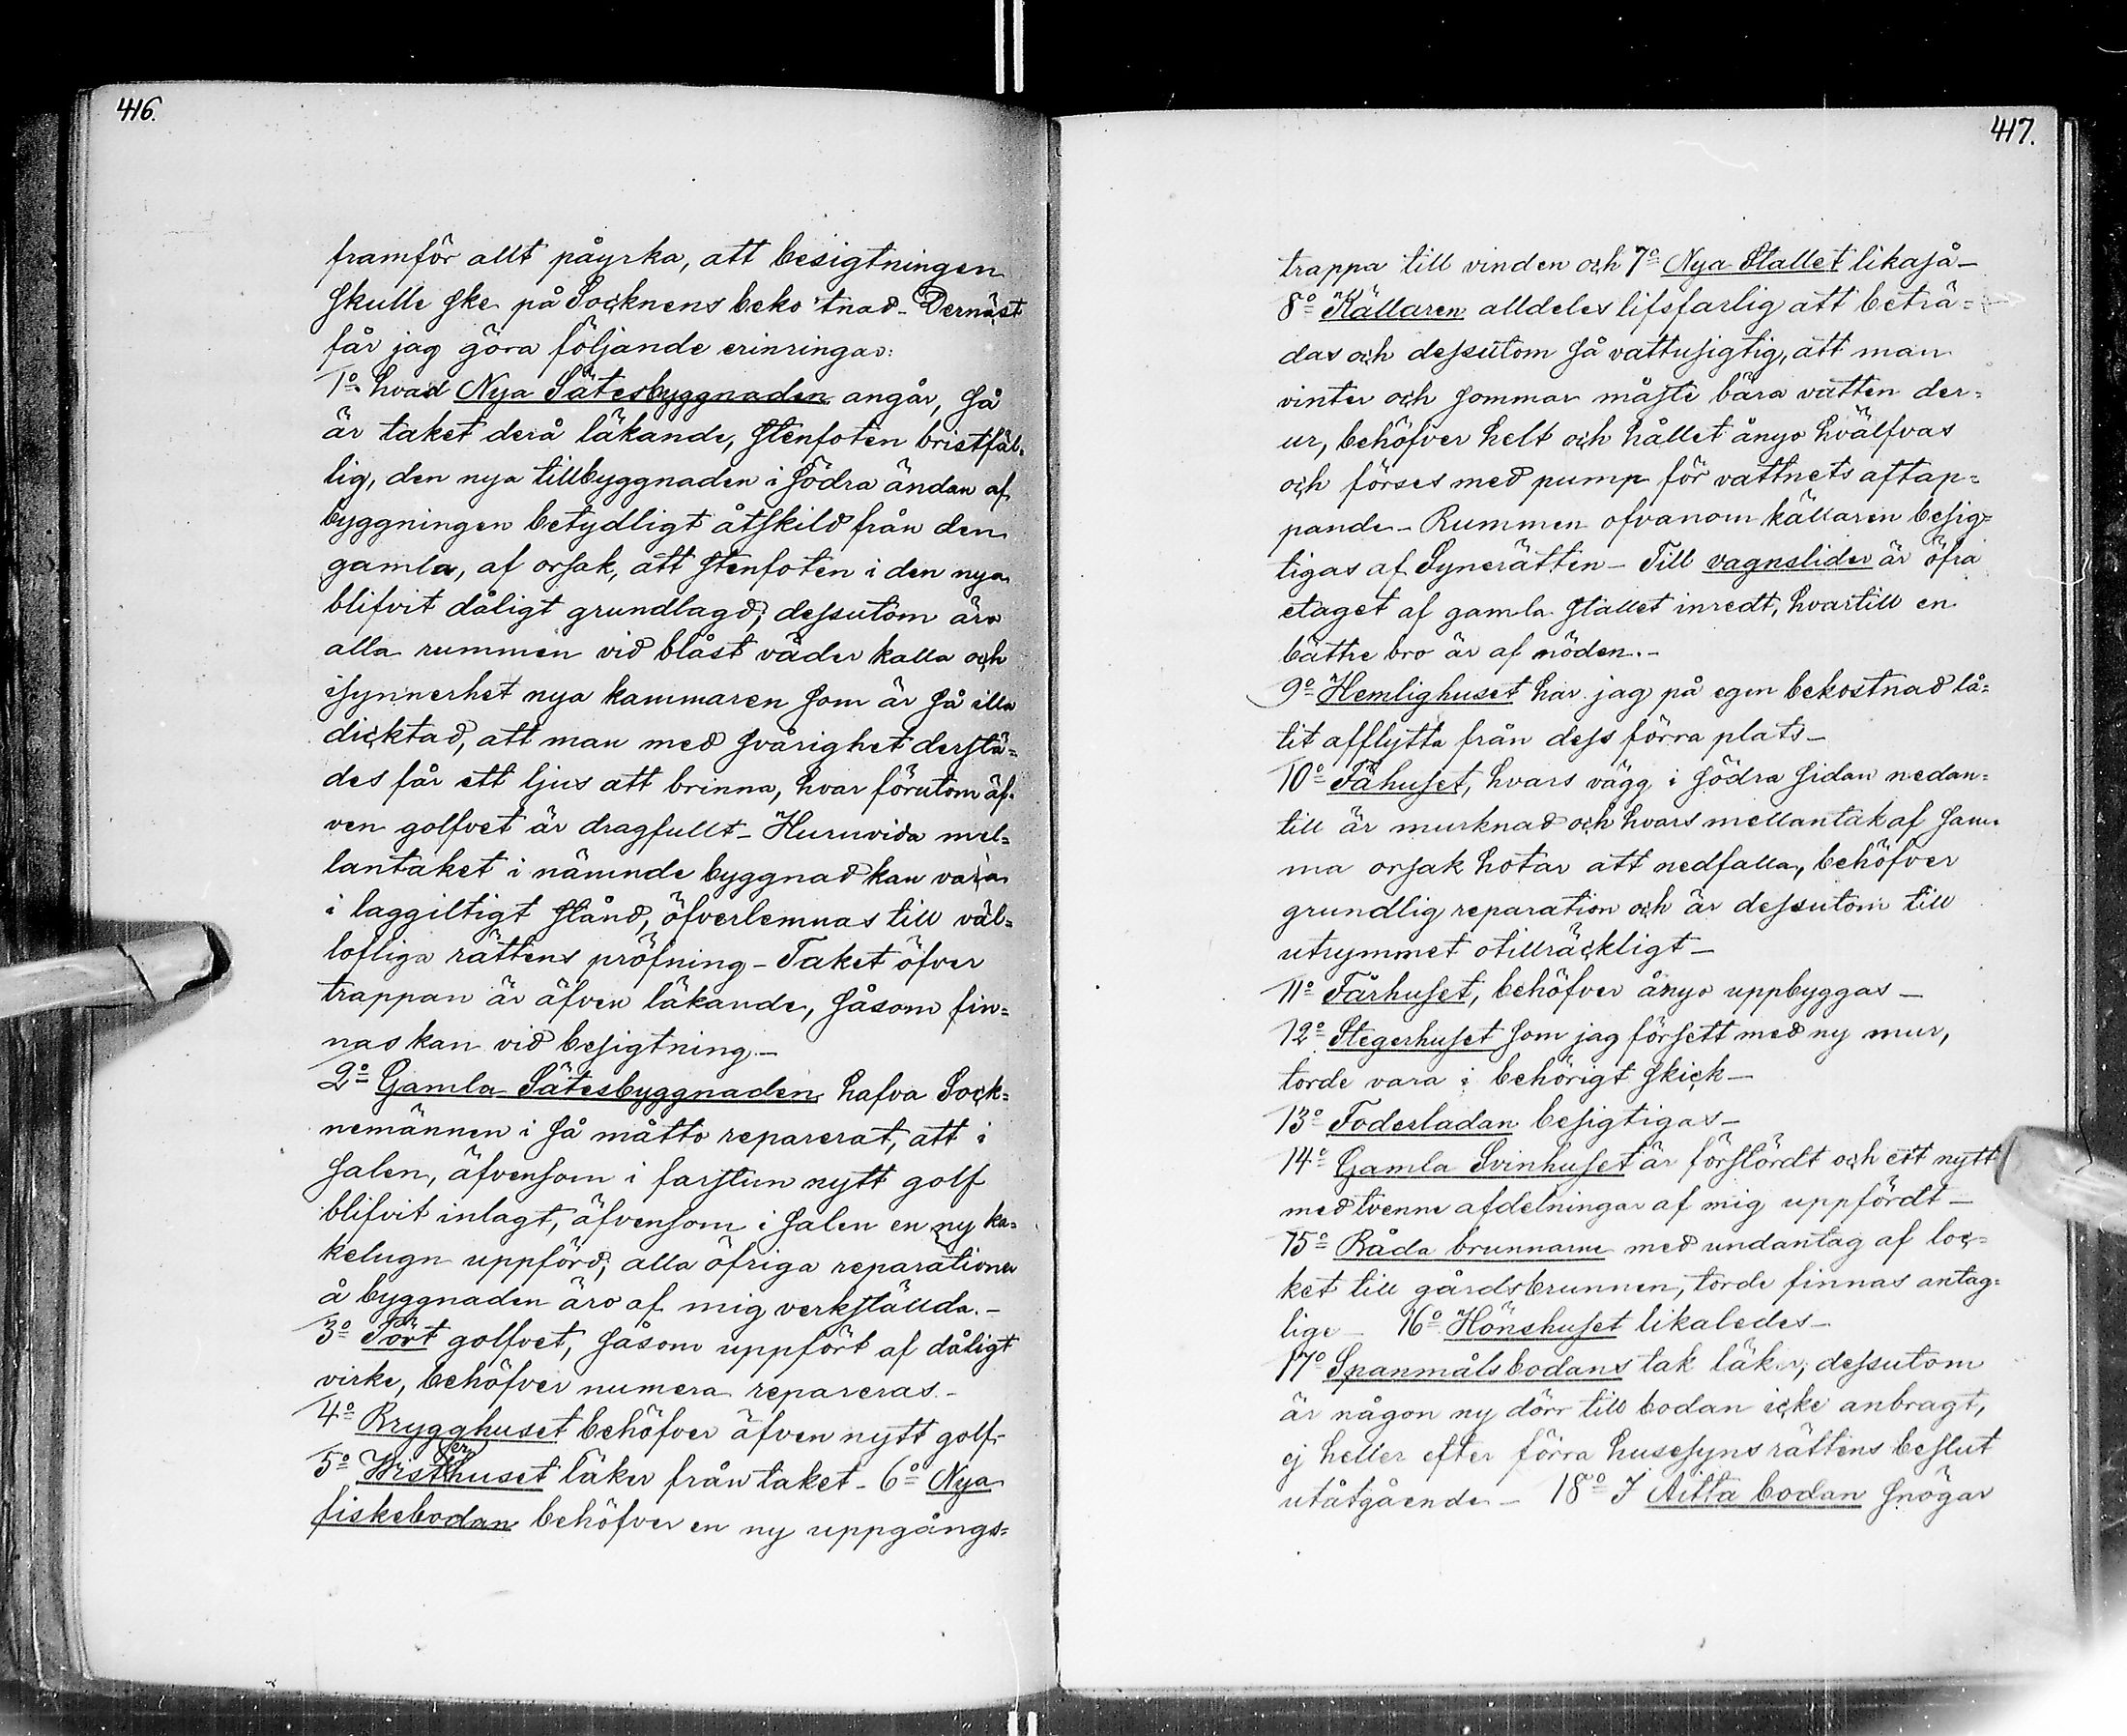 416.
framför allt påyrka, att besigtningen
skulle ske på Socknens beko'tnad - Dernäst
får jag göra följande erinringar:
1o hvad Nya Sätesbyggnaden angår, så
är taket derå läkande, stenfoten bristfäl=
lig, den nya tillbyggnaden i södra ändan af
byggningen betydligt åtskild från den
gamla, af orsak, att stenfoten i den nya
blifvit dåligt grundlagd; dessutom äro
alla rummen vid blåst väder kalla och
isynnerhet nya kammaren som är så illa
dicktad, att man med svårighet derstä=
des får ett ljus att brinna, hvar förutom äf=
ven golfvet är dragfullt - Huruvida mel=
lantaket i nämnde byggnad kan vara
i laggiltigt stånd, öfverlemnas till väl=
lofliga rättens pröfning - Taket öfver
trappan är äfven läkande, såsom fin=
nas kan vid besigtning. -
2o Gamla Sätesbyggnaden hafva Sock=
nemännen i så måtto reparerat, att i
salen, äfvensom i farstun nytt golf
blifvit inlagt, äfvensom i salen en ny ka=
kelugn uppförd; alla öfriga reparationer
å byggnaden äro af mig verkställda. -
3o Pört golfvet, såsom uppfört af dåligt
virke, behöfver numera repareras. -
4o Brygghuset behöfver äfven nytt golf -
5o Wisterhuset läker från taket - 6o Nya
fiskebodan behöfver en ny uppgångs=
417.
trappa till vinden och 7o Nya Stallet likaså -
8o Källaren alldeles lifsfarlig att beträ=
das och dessutom så vattusigtig, att man
vinter och sommar måste bära vatten der=
ur, behöfver helt och hållet ånyo hvälfvas
och förses med pump för vattnets aftap=
pande - Rummen ofvanom källaren besig=
tigas af Synerätten - Till vagnslider är öfra
etaget af gamla stallet inredt, hvartill en
bättre bro är af nöden. -
9o Hemlighuset har jag på egen bekostnad lå=
tit afflytta från dess förra plats -
10o Fähuset, hvars vägg i södra sidan nedan=
till är murknad och hvars mellantak af sam=
ma orsak hotar att nedfalla, behöfver
grundlig reparation och är dessutom till
utrymmet otillräckligt -
11o Fårhuset, behöfver ånyo uppbyggas -
12o Stegerhuset som jag försett med ny mur,
torde vara i behörigt skick -
13o Foderladan besigtigas -
14o Gamla Svinhuset är förstördt och ett nytt
med tvenne afdelningar af mig uppfördt -
15o Båda brunnarne med undantag af loc=
ket till gårdsbrunnen, torde finnas antag=
lige - 16o Hönshuset likaledes -
17o Spanmålsbodans tak läker, dessutom
är någon ny dörr till bodan icke anbragt,
ej heller efter förra husesyns rättens beslut
utåtgående - 18o I Aitta bodan snögar